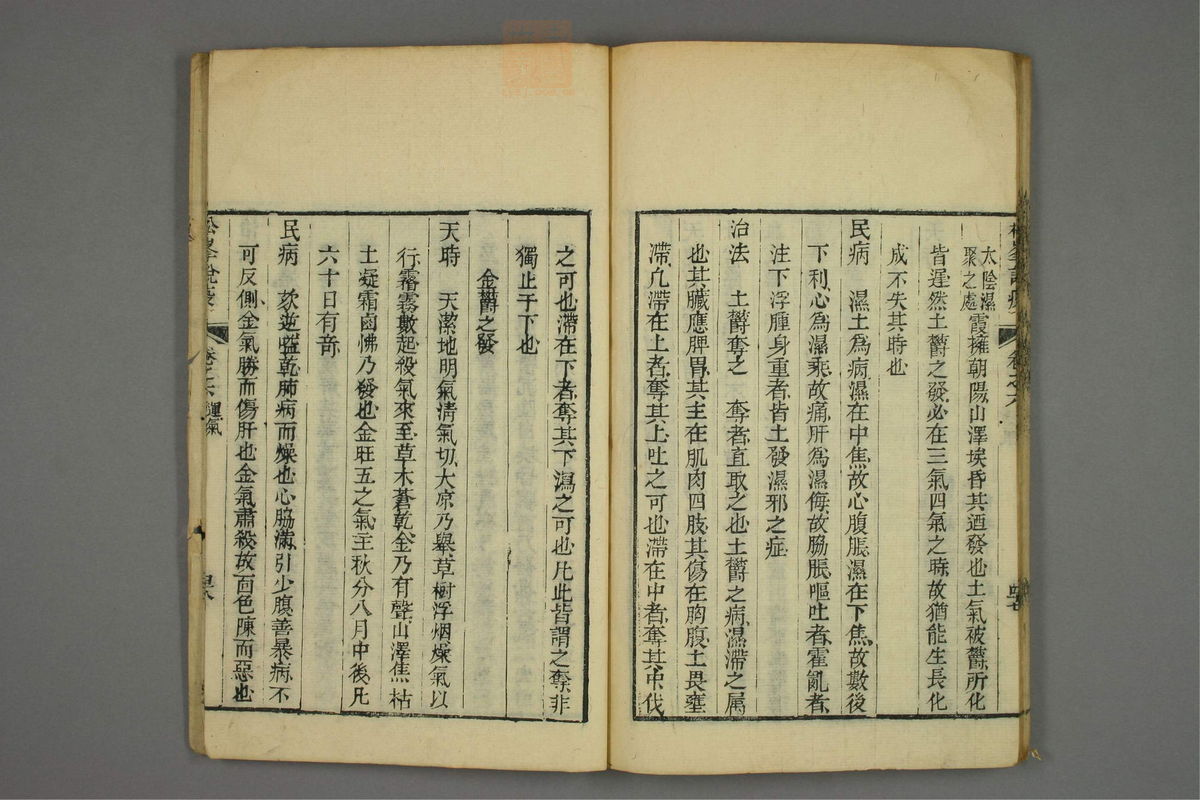 太陰濕
聚之處
霞擁朝陽山澤埃昏其迺發也土氣被鬱所化
皆遲然土鬱之發必在三氣四氣之時故猶能生長化
成不失其時也
民病　濕土為病濕在中焦故心腹脹濕在下焦故數後
下利心為濕乘故痛肝為濕侮故脇脹嘔吐者霍亂者
注下浮腫身重者皆土發濕邪之症
治法　土鬱奪之　奪者直取之也土鬱之病濕滯之属
也其臟應脾胃其主在肌肉四肢其傷在胸腹土畏壅
滯凡滯在上者奪其上吐之可也滯在中者奪其中伐
之可也滯在下者奪其下瀉之可也凡此皆謂之奪非
獨止于下也
金鬱之發
天時　天潔地明氣清氣切大凉乃舉草樹浮烟燥氣以
行霿霧數起殺氣來至草木蒼乾金乃有聲山澤焦枯
土凝霜鹵怫乃發也金旺五之氣主秋分八月中後凡
六十日有竒
民病　欬逆嗌乾肺病而燥也心脇滿引少腹善暴病不
可反側金氣勝而傷肝也金氣肅殺故面色陳而惡也
松峯說疫
卷之六
運氣